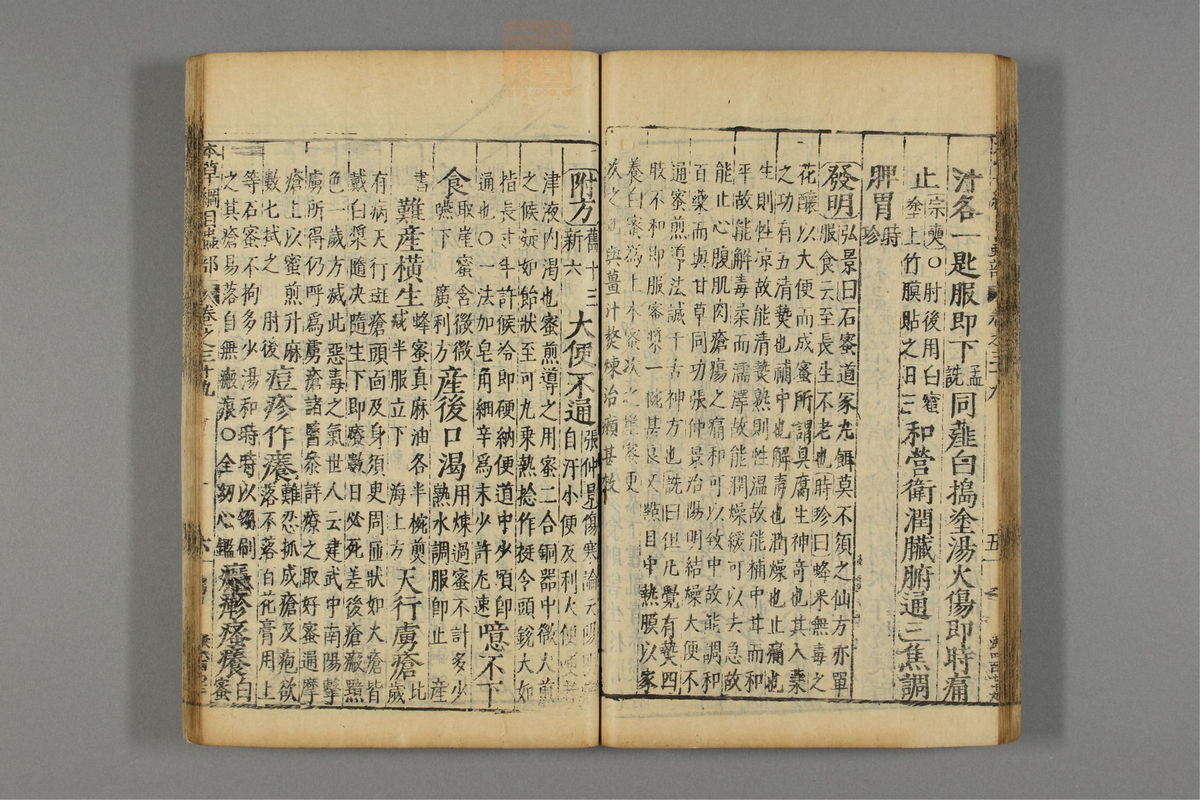 汁各一匙服即下孟詵同薤白搗塗湯火傷即時痛
止宗奭○肘後用白蜜塗上竹膜貼之日三和營衛潤臟腑通三焦調
脾胃時珍
發明弘景曰石蜜道家丸餌莫不須之仙方亦單
服食云至長生不老也時珍曰蜂采無毒之
花釀以大便而成蜜所謂臭腐生神奇也其入藥
之功有五清熱也補中也解毒也潤燥也止痛也
生則性凉故能清熱熟則性溫故能補中甘而和
平故能解毒柔而濡澤故能潤燥緩可以去急故
能止心腹肌肉瘡瘍之痛和可以致中故能調和
百藥而與甘草同功張仲景治陽明結燥大便不
通蜜煎導法誠千古神方也詵曰但凡覺有熱四
肢不和即服蜜漿一碗甚良又點目中熱膜以家
養白蜜爲上木蜜次之崖蜜更
次之也與薑汁熬煉治癩甚效
附方舊十三新六大便不通張仲景傷寒論云陽明病
自汗小便反利大便硬者
津液内竭也蜜煎導之用蜜二合銅器中微火煎
之候凝如飴狀至可丸乘熱捻作挺令頭銳大如
指長寸半許候冷即便納便道中少頃即
通也○一法加皂角細辛爲末少許尤速噫不下
食取崖蜜含微微嚥下廣利方產後口渴用煉過蜜不計多少
熟水調服即止產
書難產橫生蜂蜜真麻油各半碗煎减半服立下海上方天行虜瘡比歲
有病天行斑瘡頭面及身須臾周匝狀如火瘡皆
戴白漿隨決隨生不即療數日必死差後瘡瘢黯
色一歲方滅此惡毒之氣世人云建武中南陽擊
虜所得仍呼爲虜瘡諸醫參詳療之取好蜜遍摩
瘡上以蜜煎升麻
數匕拭之肘後痘疹作癢難忍抓成瘡及疱欲
落不落百花膏用上
等石蜜不拘多少湯和時時以翎刷
之其瘡易落自無瘢痕○全幼心鑑癮疹瘙癢白蜜
本草綱目蟲部 卷之三十九 六
五